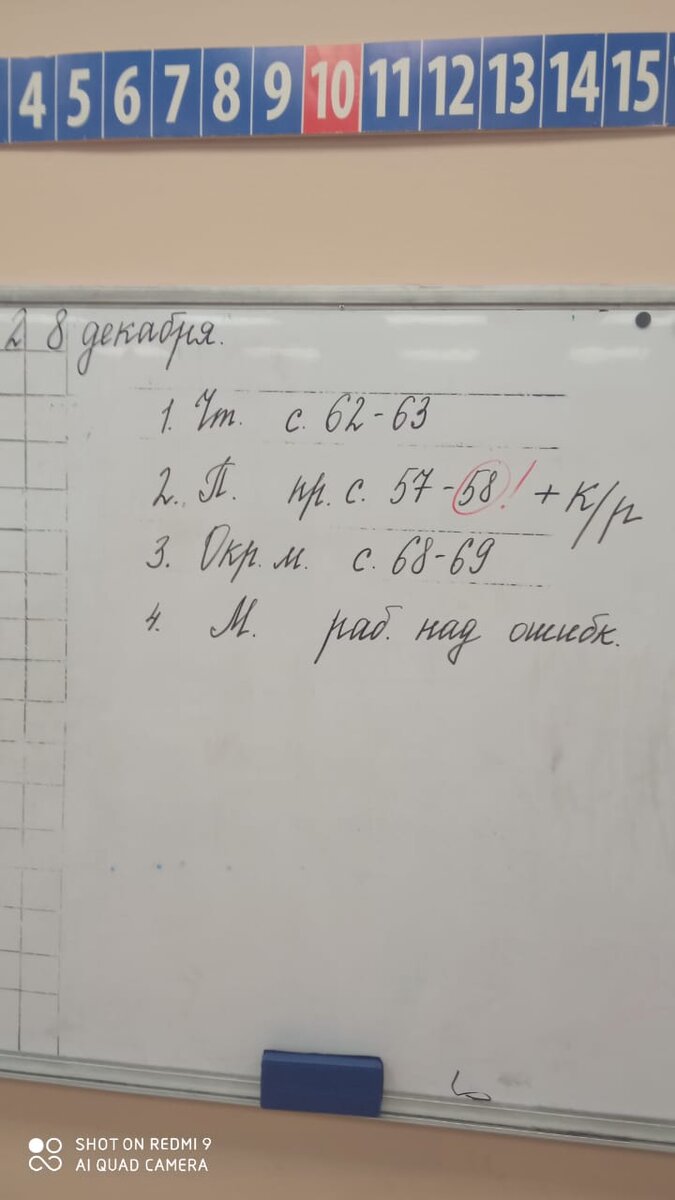 4 5 6 7 8 9 10 11 12 13 14 15
2 8 декабря.
1. Чт. с. 62-63
2. П. пр. с. 57-58! + к/р
3. Окр. м. с. 68-69
4. М. раб. над ошибк.
SHOT ON REDMI 9
AI QUAD CAMERA